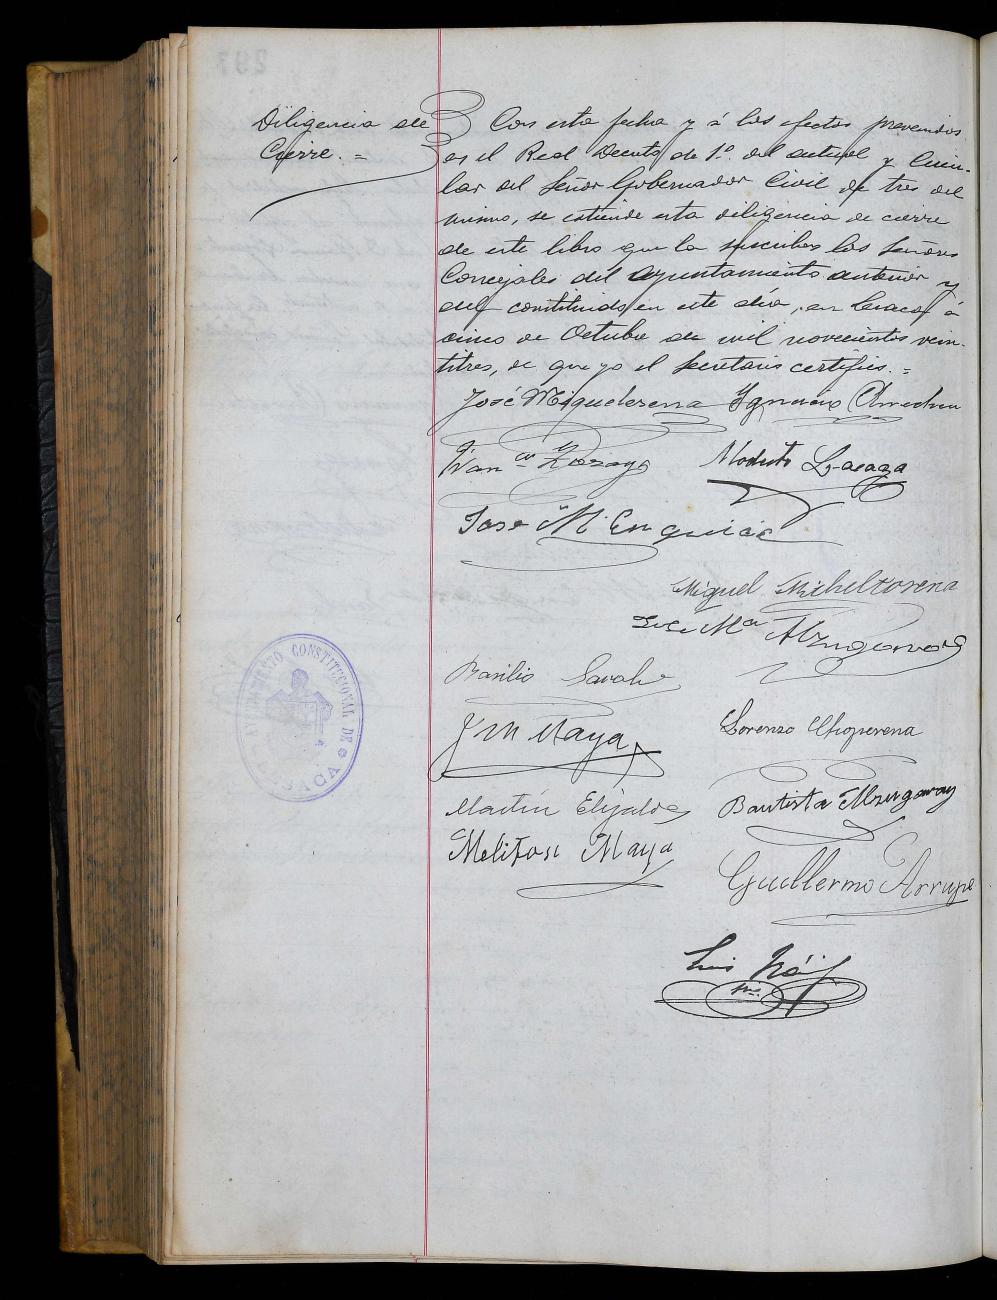 Diligencia de
Cierre. =
Con esta fecha y á los efectos prevenidos
en el Real Decreto de 1º. del actual y Circu-
lar del Señor Gobernador Civil de tres del
mismo, se extiende esta diligencia de cierre
de este libro que la suscriben los Señores
Concejales del Ayuntamiento anterior y
del constituido en este día, en Lesaca á
cinco de Octubre de mil novecientos vein-
titres, de que yo el Secretario certifico. =
José Migueltorena Ignacio
Franco Zozaya Modesto Lasaga
José M. Enquica
Miguel Micheltorena
José Mª Alzugaray
Basilio
J M Maya Lorenzo Choperena
Martín Elizalde Bautista Alzugaray
Meliton Maya
Guillermo Arrupe
Luis
Srio.
AYUNTAMIENTO CONSTITUCIONAL DE LESACA